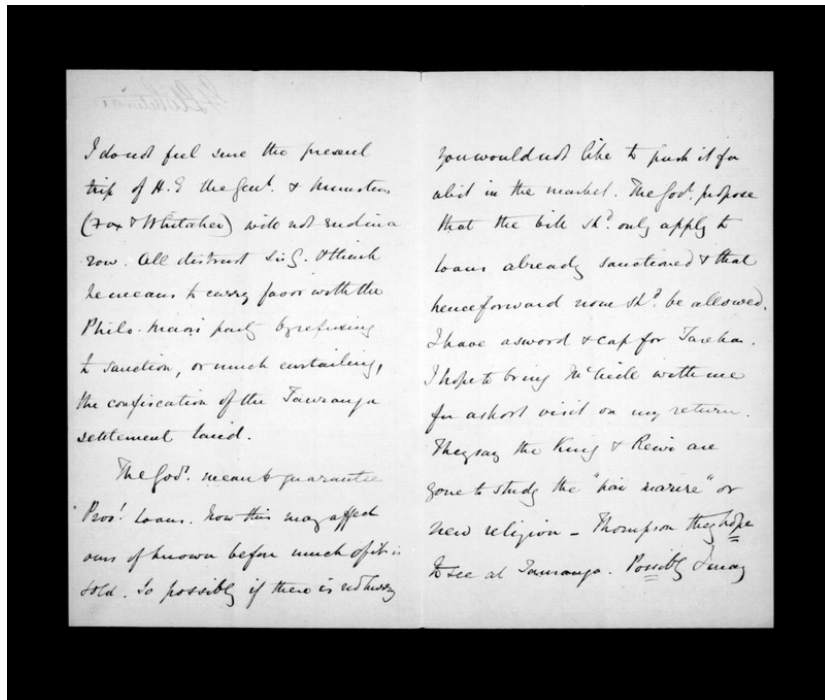 I do not feel sure the present
trip of H.E the Genl. & ministers
(Fox & Whitaker) will not end in a
row. All distrust Sir G. & think
he means to curry favor with the
Philo-maori party by refusing
to sanction, or much curtailing,
the confiscation of the Tauranga
settlement land.
The Govt. mean to guarantee
Provl. Loans. Now this may affect
ours if known before much of it is
sold. So possibly if there is no hurry
you would not like to push it for
a bit in the market. The Govt. propose
that the bill shd. only apply to
loans already sanctioned & that
henceforward none shd. be allowed.
I have a sword & cap for Tareha.
I hope to bring with me
for a short visit on my return.
They say the King & Rewi are
gone to study the "pai marire" or
new religion - Thompson they hope
to see at Tauranga. Possibly I may